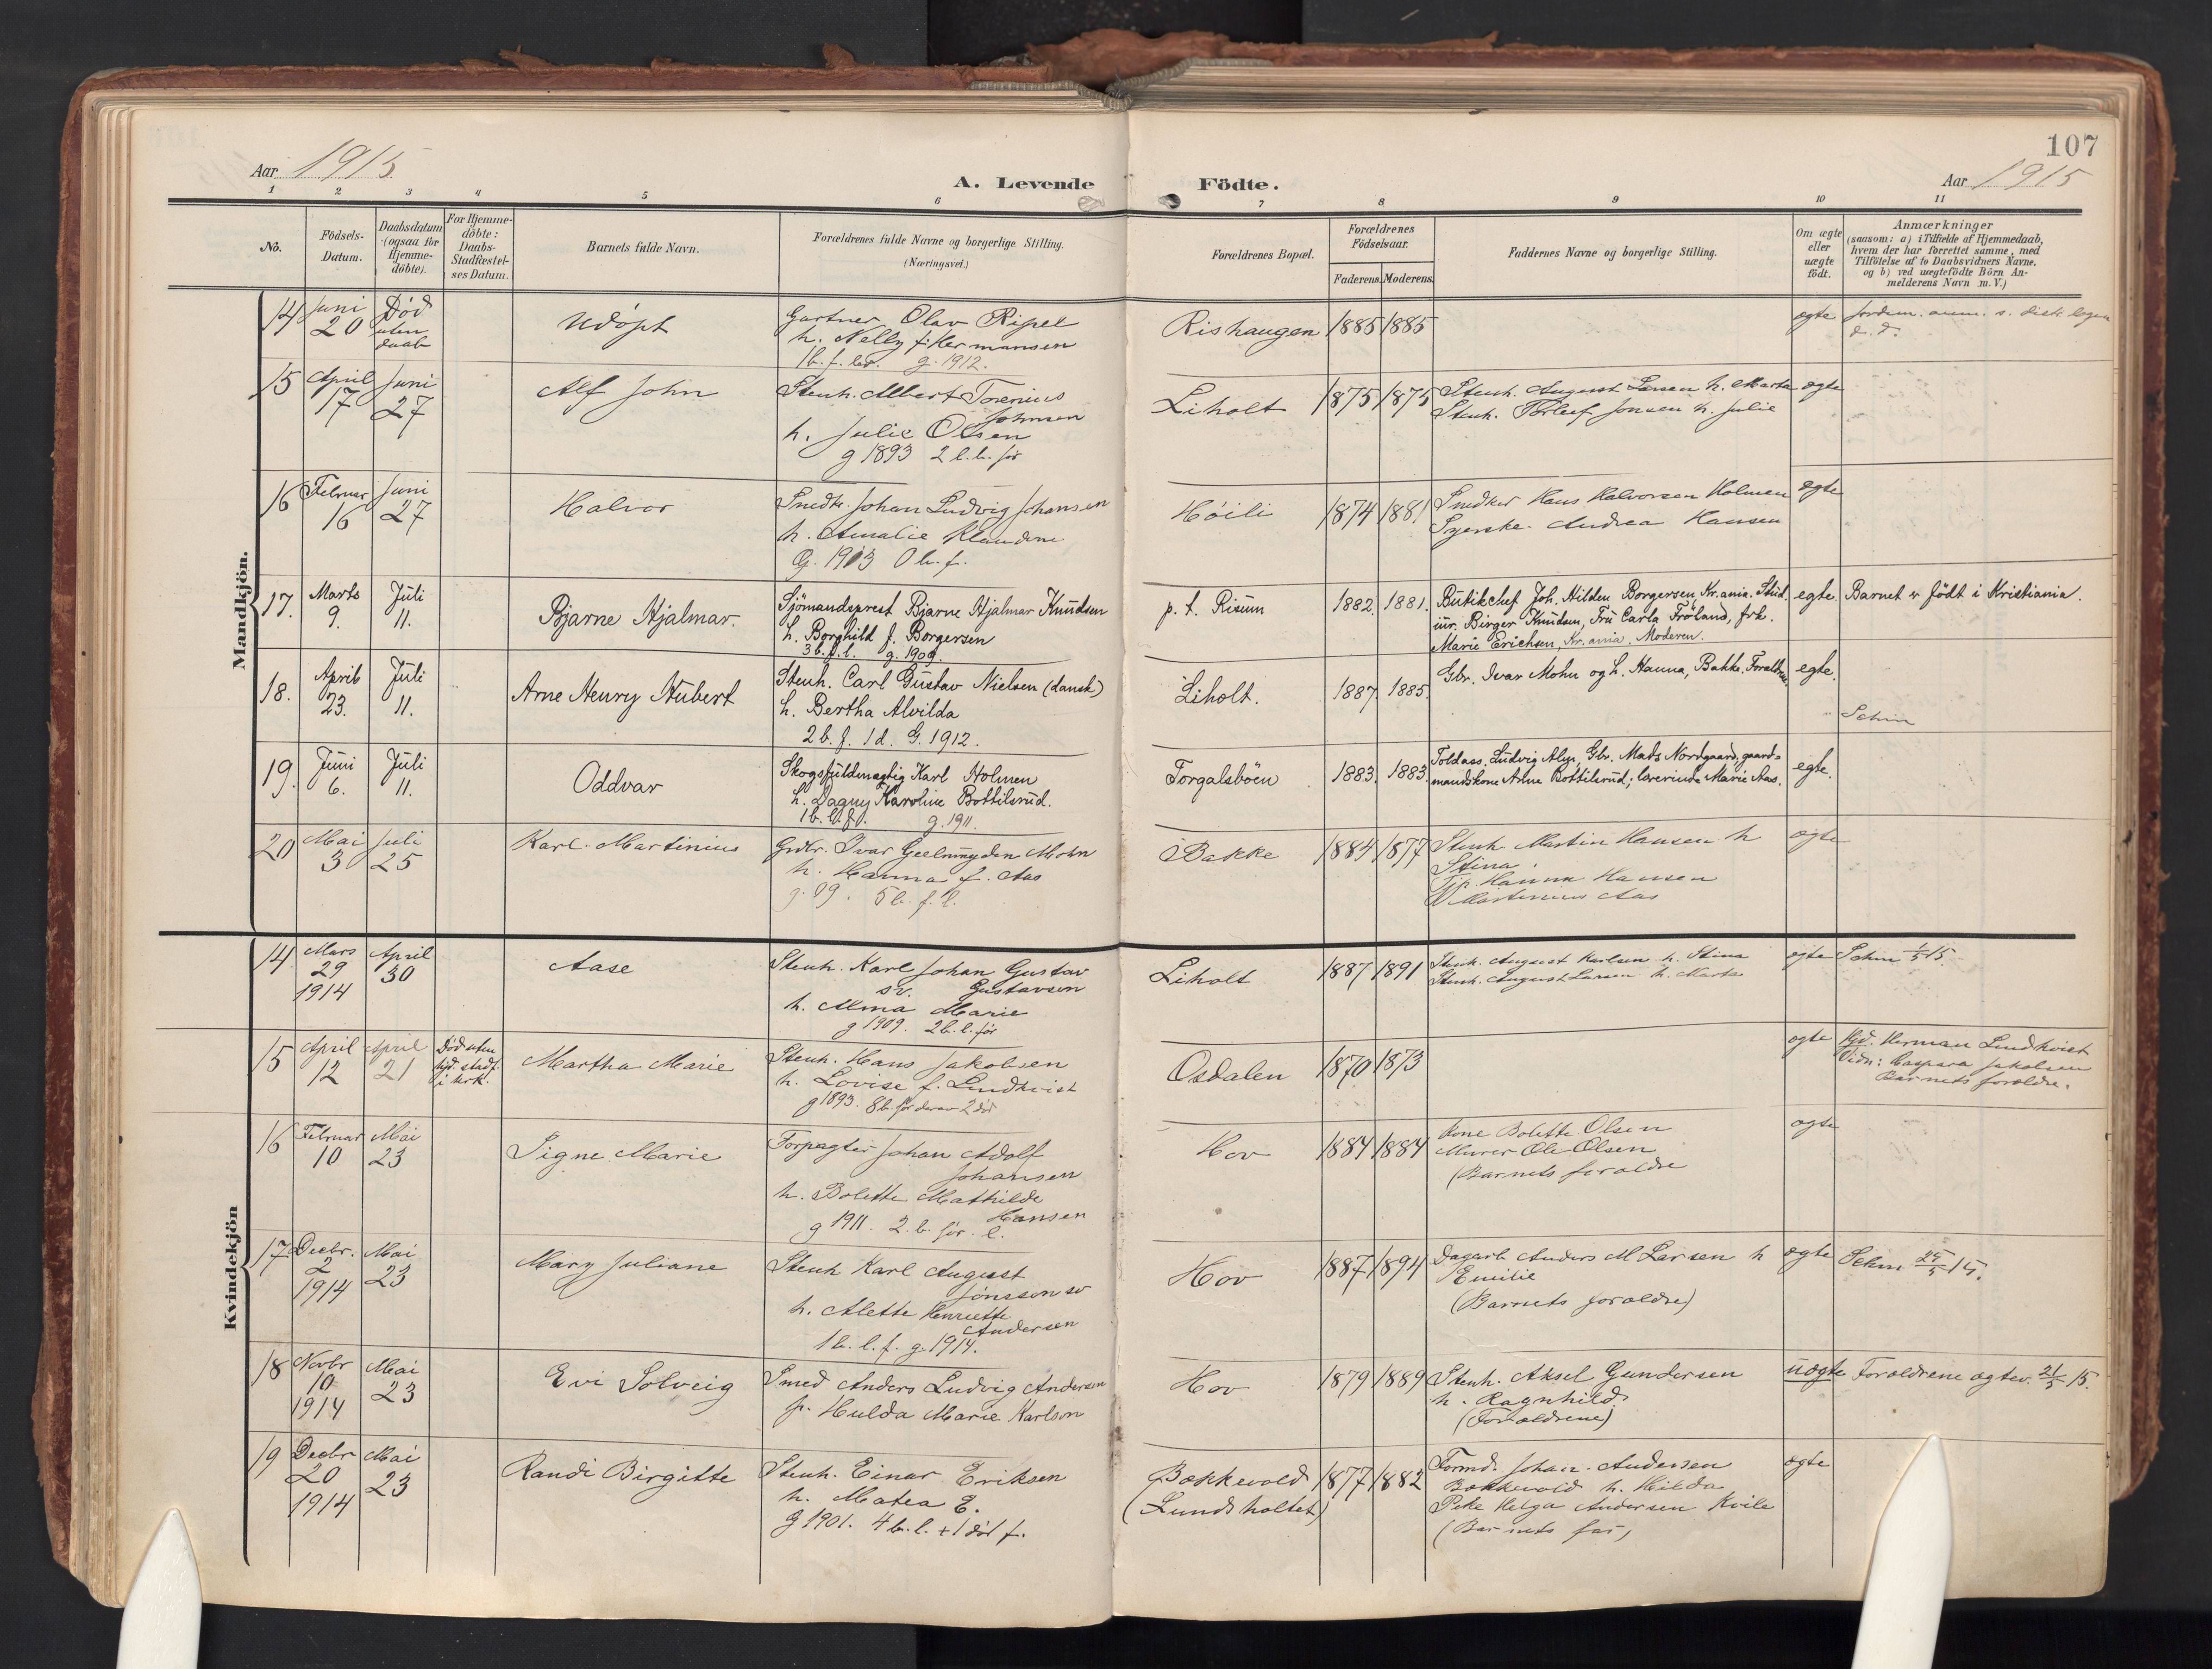 107
Aar 1915
A. Levende Födte.
Aar 1915
1 2 3 4 5 6 7 8 9 10 11
No.
Födsels-
Datum.
Daabsdatum
(ogsaa for
Hjemme-
döbte).
For Hjemme-
döbte:
Daabs-
Stadfæstel-
ses Datum.
Barnets fulde Navn.
Forældrenes fulde Navne og borgerlige Stilling.
(Næringsvei.)
Forældrenes Bopæl.
Forældrenes
Födselsaar.
Faderens. Moderens.
Faddernes Navne og borgerlige Stilling.
Om ægte
eller
uægte
födt.
Anmærkninger
(saasom: a) i Tilfælde af Hjemmedaab,
hvem der har forrettet samme, med
Tilföielse af to Daabsvidners Navne,
og b) ved uægtefödte Börn An-
melderens Navn m. V.)
Mandkjön.
14 Juni
20
Død
uten
daab
Udøpt
Gartner Olav Ripel
h. Nelly f. Hermansen
1 b. f. lev. g. 1912.
Rishaugen 1885 1885
ægte
Jordm. anm. s. distr. lægen
d. d.
15 April
17
Juni
27
Alf John
Stenh. Albert Torenius
Johnsen
h. Julie Olsen
g 1893 2 l. b. før
Liholt 1875 1875
Stenh. August Larsen h. Marta
Stenh. Torleif Jonsen h. Julie
ægte
16 Februar
16
Juni
27
Halvor
Snedk. Johan Ludvig Johansen
h. Amalie
G. 1913 0 b. f.
Høili 1874 1881
Snedker Hans Halvorsen Holmen
Syerske Andrea Hansen
ægte
17. Marts
9.
Juli
11.
Bjarne Hjalmar.
Sjömandsprest Bjarne Hjalmar Knudsen
h. Borghild f. Borgersen
3 b. f. l. g. 1909.
p. t. Risum 1882. 1881.
Butikchef Joh. Hilden Borgersen, Kr.ania. Stud.
iur. Birger Knudsen, Fru Carla Fröland, frk.
Marie Erichsen, Kr.ania. Moderen.
egte.
Barnet er födt i Kristiania.
18. April
23.
Juli
11.
Arne Henry Hubert
Stenh. Carl Gustav Nielsen (dansk)
h. Bertha Alvilda
2 b. f. 1 d. G. 1912.
Liholt. 1887. 1885.
Gbr. Ivar Mohn og h. Hanna, Bakke. Foreldrene
egte.
Schm
19. Juni
6.
Juli
11.
Oddvar
Skogsfuldmægtig Karl Holmen
h. Dagny Karoline Bottilsrud.
1 b. l. f. g. 1911.
Torgalsböen 1883. 1883.
Toldass. Ludvig Alyn, Gbr. Mads Nordgaard, gaard-
mandskone Alma Bottilsrud; lærerinde Marie Aas.
egte.
20 Mai
3
Juli
25
Karl Martinius
Grdbr. Ivar Geelmuyden Mohn
h. Hanna f. Aas
g. 09. 5 b. f. l.
Bakke 1884 1877
Stenh. Martin Hansen h
Stina
Tjp. Hanna Hansen
Martinius Aas
ægte
Kvindekjön
14 Mars
29
1914
April
30
Aase
Stenh. Karl Johan Gustav
sv. Gustavson
h. Alma Marie
g 1909. 2 b. l. før
Liholt 1887 1891
Stenh. August Karlsen h. Stina
Stenh. August Larsen h. Marta
ægte
Schm 1/5 15.
15 April
12
April
21
Død uten
hjd. stadf.
i kirk.
Martha Marie
Stenh. Hans Jakobsen
h. Lovise f. Lindkvist
g 1893. 8 b. før derav 2 død
Osdalen 1870 1873
ægte
Hjd. Herman Lindkvist
Vidn: Caspara Jakobsen
Barnets forældre.
16 Februar
10
Mai
23
Signe Marie
Forpagter Johan Adolf
Johansen
h. Bolette Mathilde
Hansen
g 1911. 2. b. før. l.
Hov 1884 1884
Kone Bolette Olsen
Murer Ole Olsen
(Barnets forældre
ægte
17. Decbr.
2
1914
Mai
23
Mary Juliane
Stenh Karl August
Jonsson sv
h. Alette Henriette
Andersen
1 b. l. f. g. 1914.
Hov 1887 1894
Dagarb. Anders M Larsen h
Emilie
(Barnets forældre)
ægte
Schm 25/5 15.
18 Novbr
10
1914
Mai
23
Evi Solveig
Smed Anders Ludvig Andersen
p. Hulda Marie Karlson
Hov 1879 1889
Stenh. Aksel Gundersen
h. Ragnhild
(Forældrene)
uægte
Forældrene ægtev. 21/5 15.
19 Decbr
20
1914
Mai
23
Randi Birgitte
Stenh. Einar Eriksen
h. Matea E.
g 1901. 4 b. l. + 1 død f.
Bækkevold
(Lundsholtet) 1877 1882
Formd. Johan Andersen
Bækkevold h. Hilda
Pike Helga Andersen Kvile
(Barnets far)
ægte